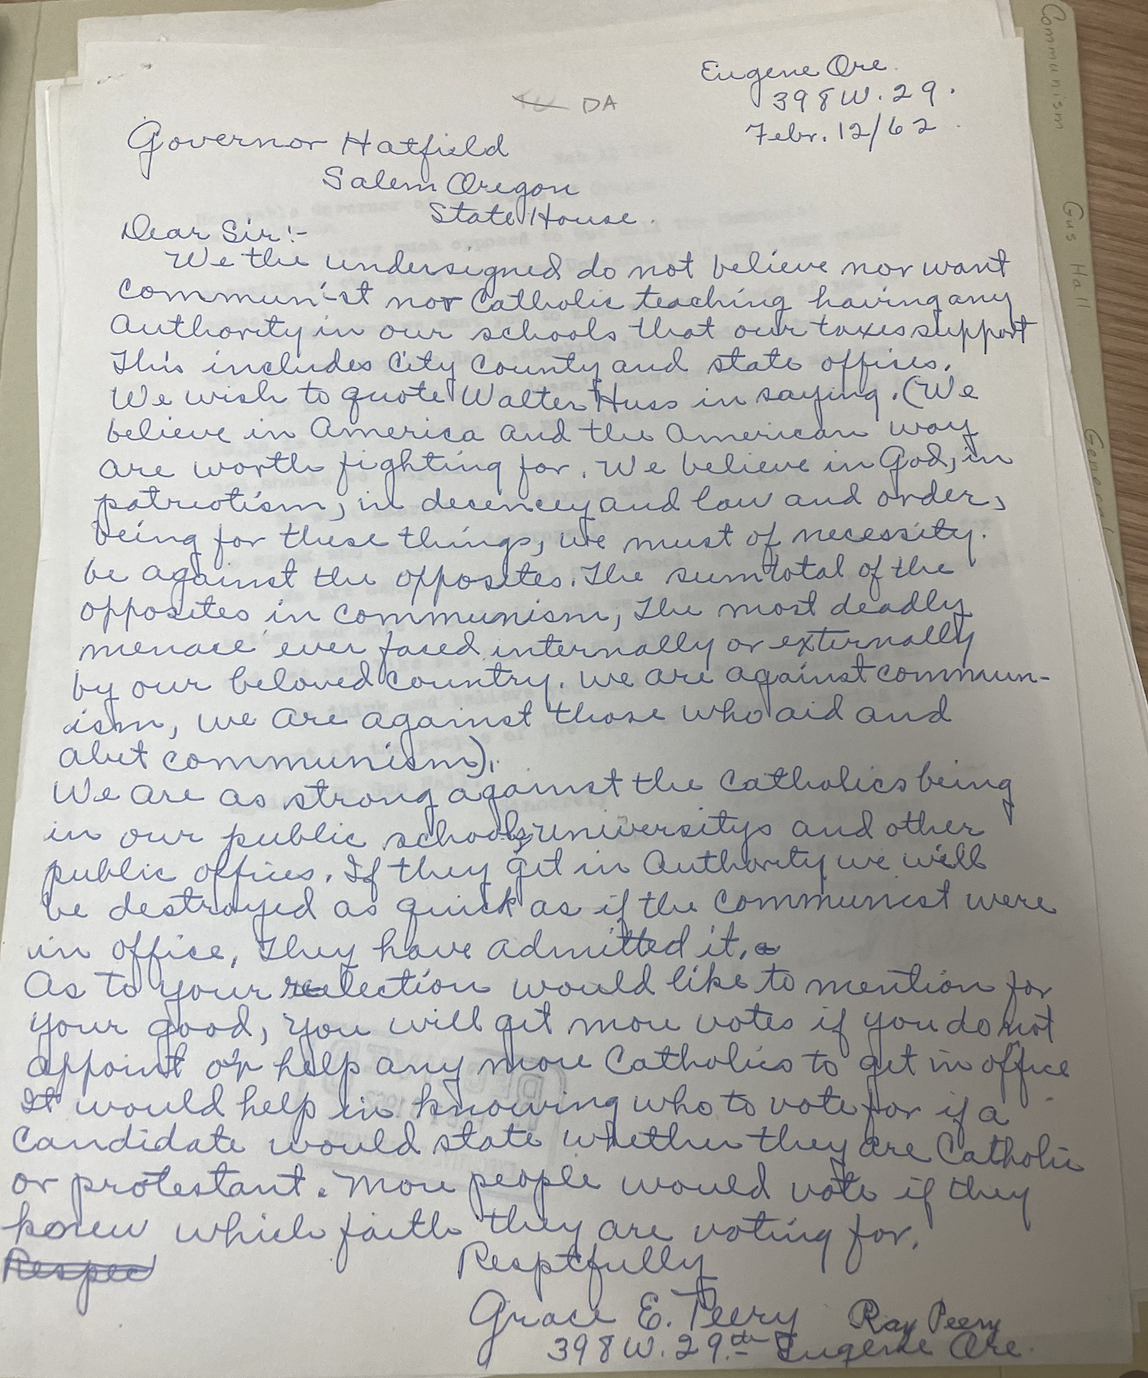 Eugene Ore.
398 W. 29.
Febr. 12/62.
DA
Governor Hatfield
Salem Oregon
State House.
Dear Sir:-
We the undersigned do not believe nor want
communist nor Catholic teaching having any
Authority in our schools that our taxes support
This includes City County and state offises.
We wish to quote Walter Huss in saying. (We
believe in America and the American way
are worth fighting for. We believe in God, in
patriotism, in decencey and law and order,
being for these things, we must of necessity.
be against the opposites. The sumtotal of the
opposites in communism, The most deadly
menace ever faced internally or externally
by our beloved country. we are against commun-
ism, we are against those who aid and
abet communism).
We are as strong against the Catholics being
in our public schools, universitys and other
public offices. If they get in Authority we will
be destroyed as quick as if the communist were
in office, They have admitted it.
As to your reelection would like to mention for
your good, you will get more votes if you do not
appoint or help any more Catholics to get in office
It would help in knowing who to vote for if a
candidate would state whether they are Catholic
or protestant. More people would vote if they
knew which faith they are voting for.
Respec
Resptfully
Grace E. Peery Ray Peery
398 W. 29.th Eugene Ore.
Communism
Gus Hall
General
RECEIVED